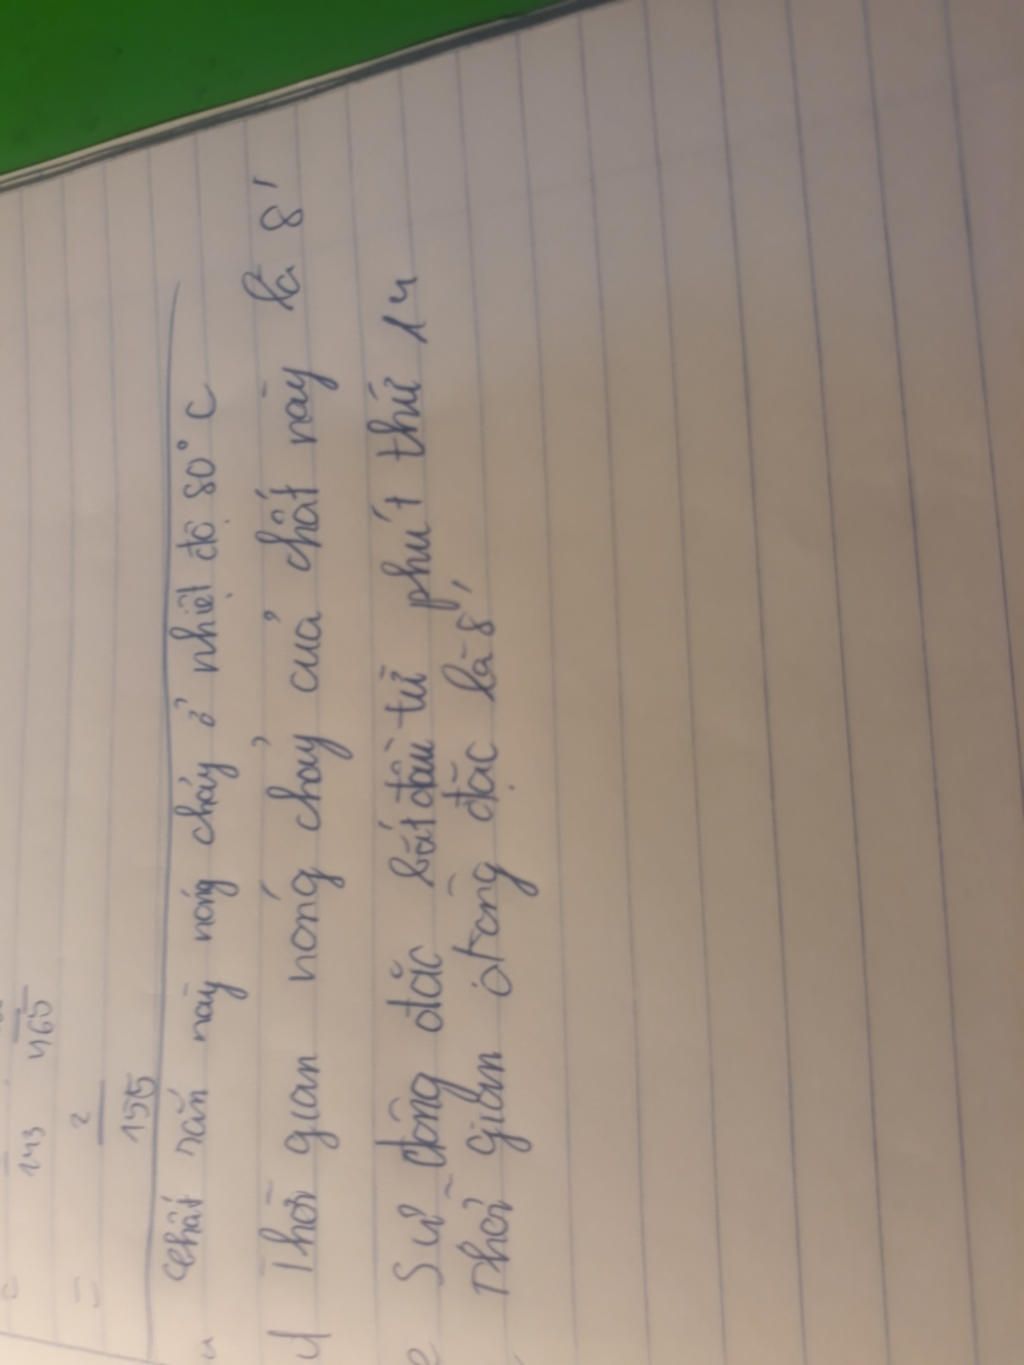 143 465
2
155
Chất rắn này nóng chảy ở nhiệt độ 80° C
Thời gian nóng chảy của chất này là 8'
Sự đông đặc bắt đầu từ phút thứ 14
Thời gian đông đặc là 8'